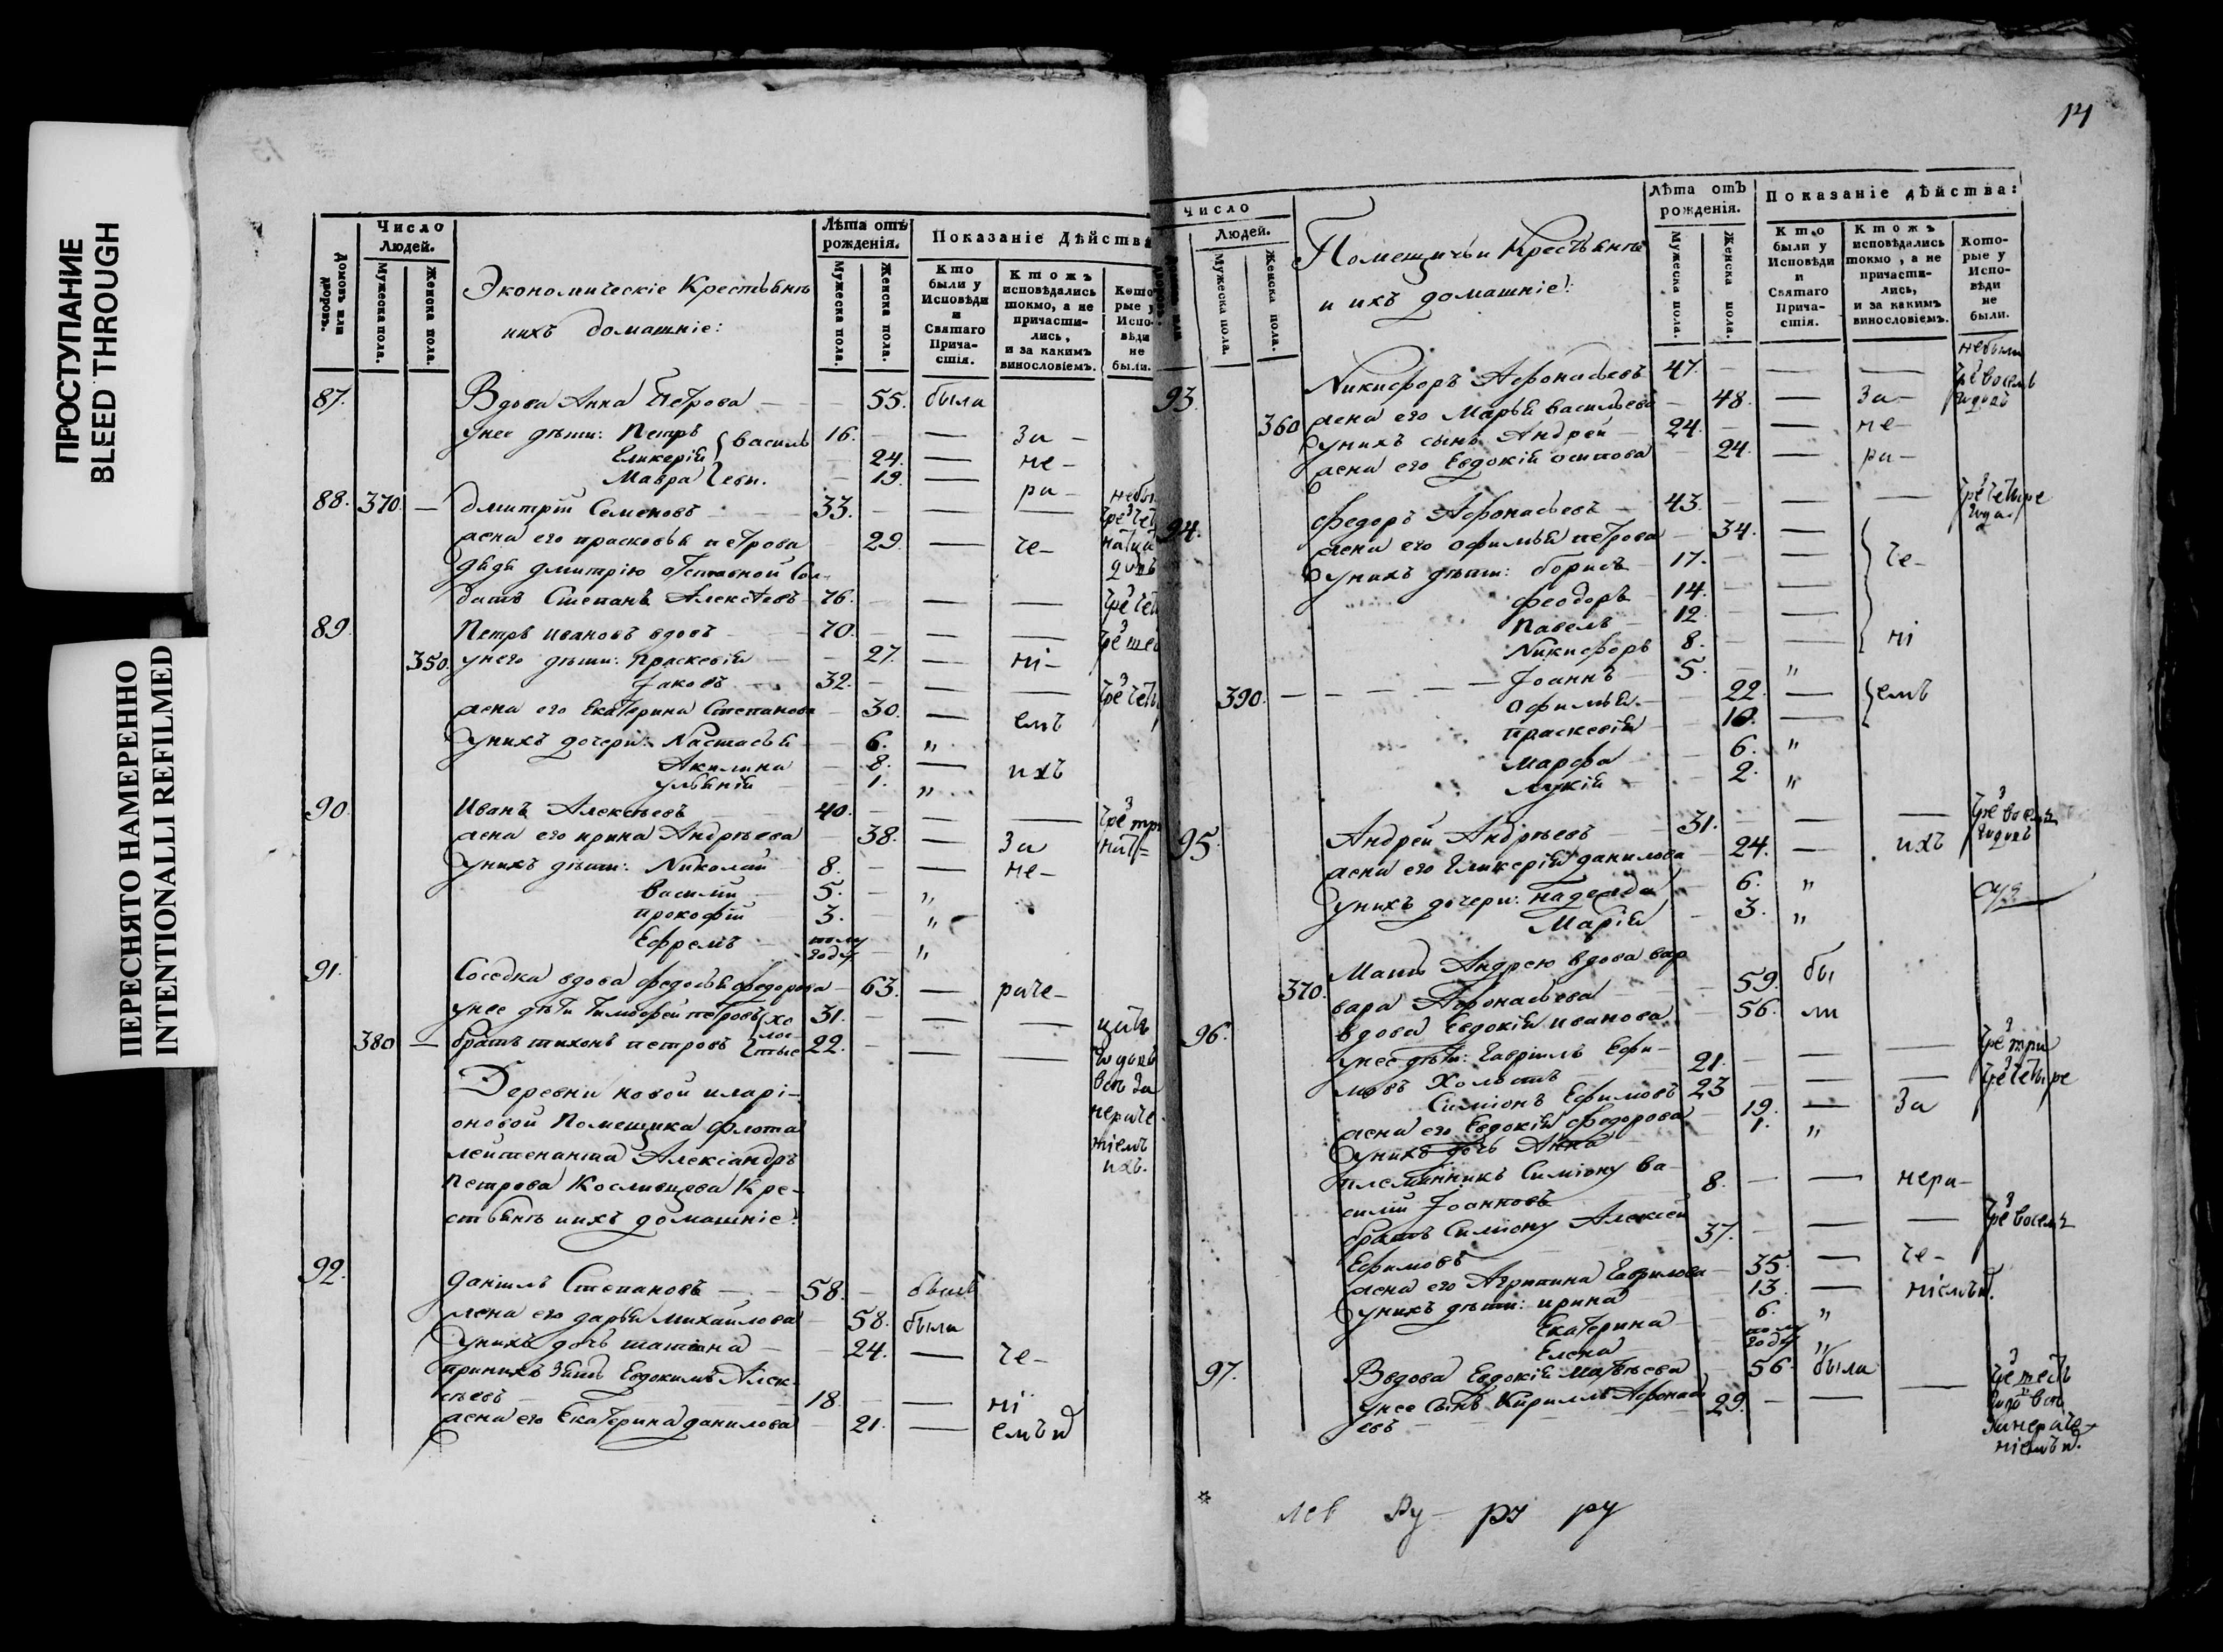 ПРОСТУПАНИЕ
BLEED THROUGH
ПЕРЕСНЯТО НАМЕРЕННО
INTENTIONALLI REFILMED
Домовъ или дворовъ.
Число Людей.
Мужеска пола.
Женска пола.
Экономическіе Крестьянѣ
ихъ домашніе:
Лѣта отъ рожденія.
Мужеска пола.
Женска пола.
Показаніе Дѣйства
Кто были у Исповѣди и Святаго Причастія.
Ктожъ исповѣдались токмо, а не причастились, и за какимъ винословіемъ.
Которые у Исповѣди не были.
87. Вдова Анна Петрова 55. была
унее дѣти: Петръ 16. За
Гликерій } василь 24. не
Мавра } евы. 19. ра
88. 370 Дмитрій Семеновъ 33.
жена его прасковья петрова 29. че
дядя дмитрію отставной Сол-
датъ Степанъ Алексѣевъ 76.
89. Петръ Ивановъ вдовъ 70.
350. унего дѣти: Праскевія 27. ні
Іаковъ 32.
жена его Екатерина Степанова 30. емъ
унихъ дочери: Настасья 6. „
Акилина 8. ихъ
Ульянія 1. „
90. Иванъ Алексѣевъ 40.
жена его ирина Андрѣева 38. За
унихъ дѣти: Николай 8. не
Василій 5. „
прокофій 3. „
Ефремъ полу году „
91. Соседка вдова федосья федорова 63. раче
унее дѣти Тимофей петровъ } хо 31.
380 братъ тихонъ петровъ } лос тые 22.
Деревни новой иларі-
оновой Помещика флота
лейтенанта Александръ
Петрова Косливцова Кре-
стьянѣ иихъ домашніе:
92. Даніилъ Степановъ 58. былъ
жена его дарья михайлова 58. была
унихъ дочь татіана 24. че
принихъ Зять Евдокимъ Алек-
сѣевъ 18. ні
жена его Екатерина данилова 21. емъ
14
Число Людей.
Мужеска пола.
Женска пола.
Помещичьи Крестьянѣ
и ихъ домашніе:
Лѣта отъ рожденія.
Мужеска пола.
Женска пола.
Показаніе дѣйства:
Кто были у Исповѣди и Святаго Причастія.
Ктожъ исповѣдались токмо, а не причастились, и за какимъ винословіемъ.
Которые у Исповѣди не были.
небыли
93. Никифоръ Афонасьевъ 47. чрез восемь годовъ
жена его Марья васильева 48. За
360 унихъ сынъ Андрей 24. не
жена его Евдокія осипова 24. ра
94. федоръ Афонасьевъ 43. чрез четыре года
жена его Офимья петрова 34.
унихъ дѣти: борисъ 17. че
феодоръ 14.
Павелъ 12.
Никифоръ 8. ні
390. Іоаннъ 5. „
Офимья 22. емъ
праскевія 10.
марфа 6. „
Лукія 2. „
95. Андрей Андрѣевъ 31. чрез восемь годовъ
жена его Гликерія данилова 24. ихъ
унихъ дочери: надежда 6. „
Марія 3. „
Мать Андрею вдова вар
370. вара Афонасьева 59. бы
96. Вдова Евдокія иванова 56. ли
унее дѣти: Гавріилъ Ефи-
мовъ Холостъ 21. чрез три
Симіонъ Ефимовъ 23 чрез четыре
жена его Евдокія федорова 19. За
унихъ дочь Анна 1. „
племянникъ Симіону ва-
силій Іоанновъ 8. нера
братъ Симіону Алексей
Ефимовъ 37. чрез восемь
жена его Агрипина Гаврилова 35. че
унихъ дѣти: ирина 13. ніемъ
Екатерина 6. „
Елена полу году „
97. Вдова Евдокія Матвѣева 56. была
унее сынъ Кириллъ Афонась
евъ 29.
ру ру